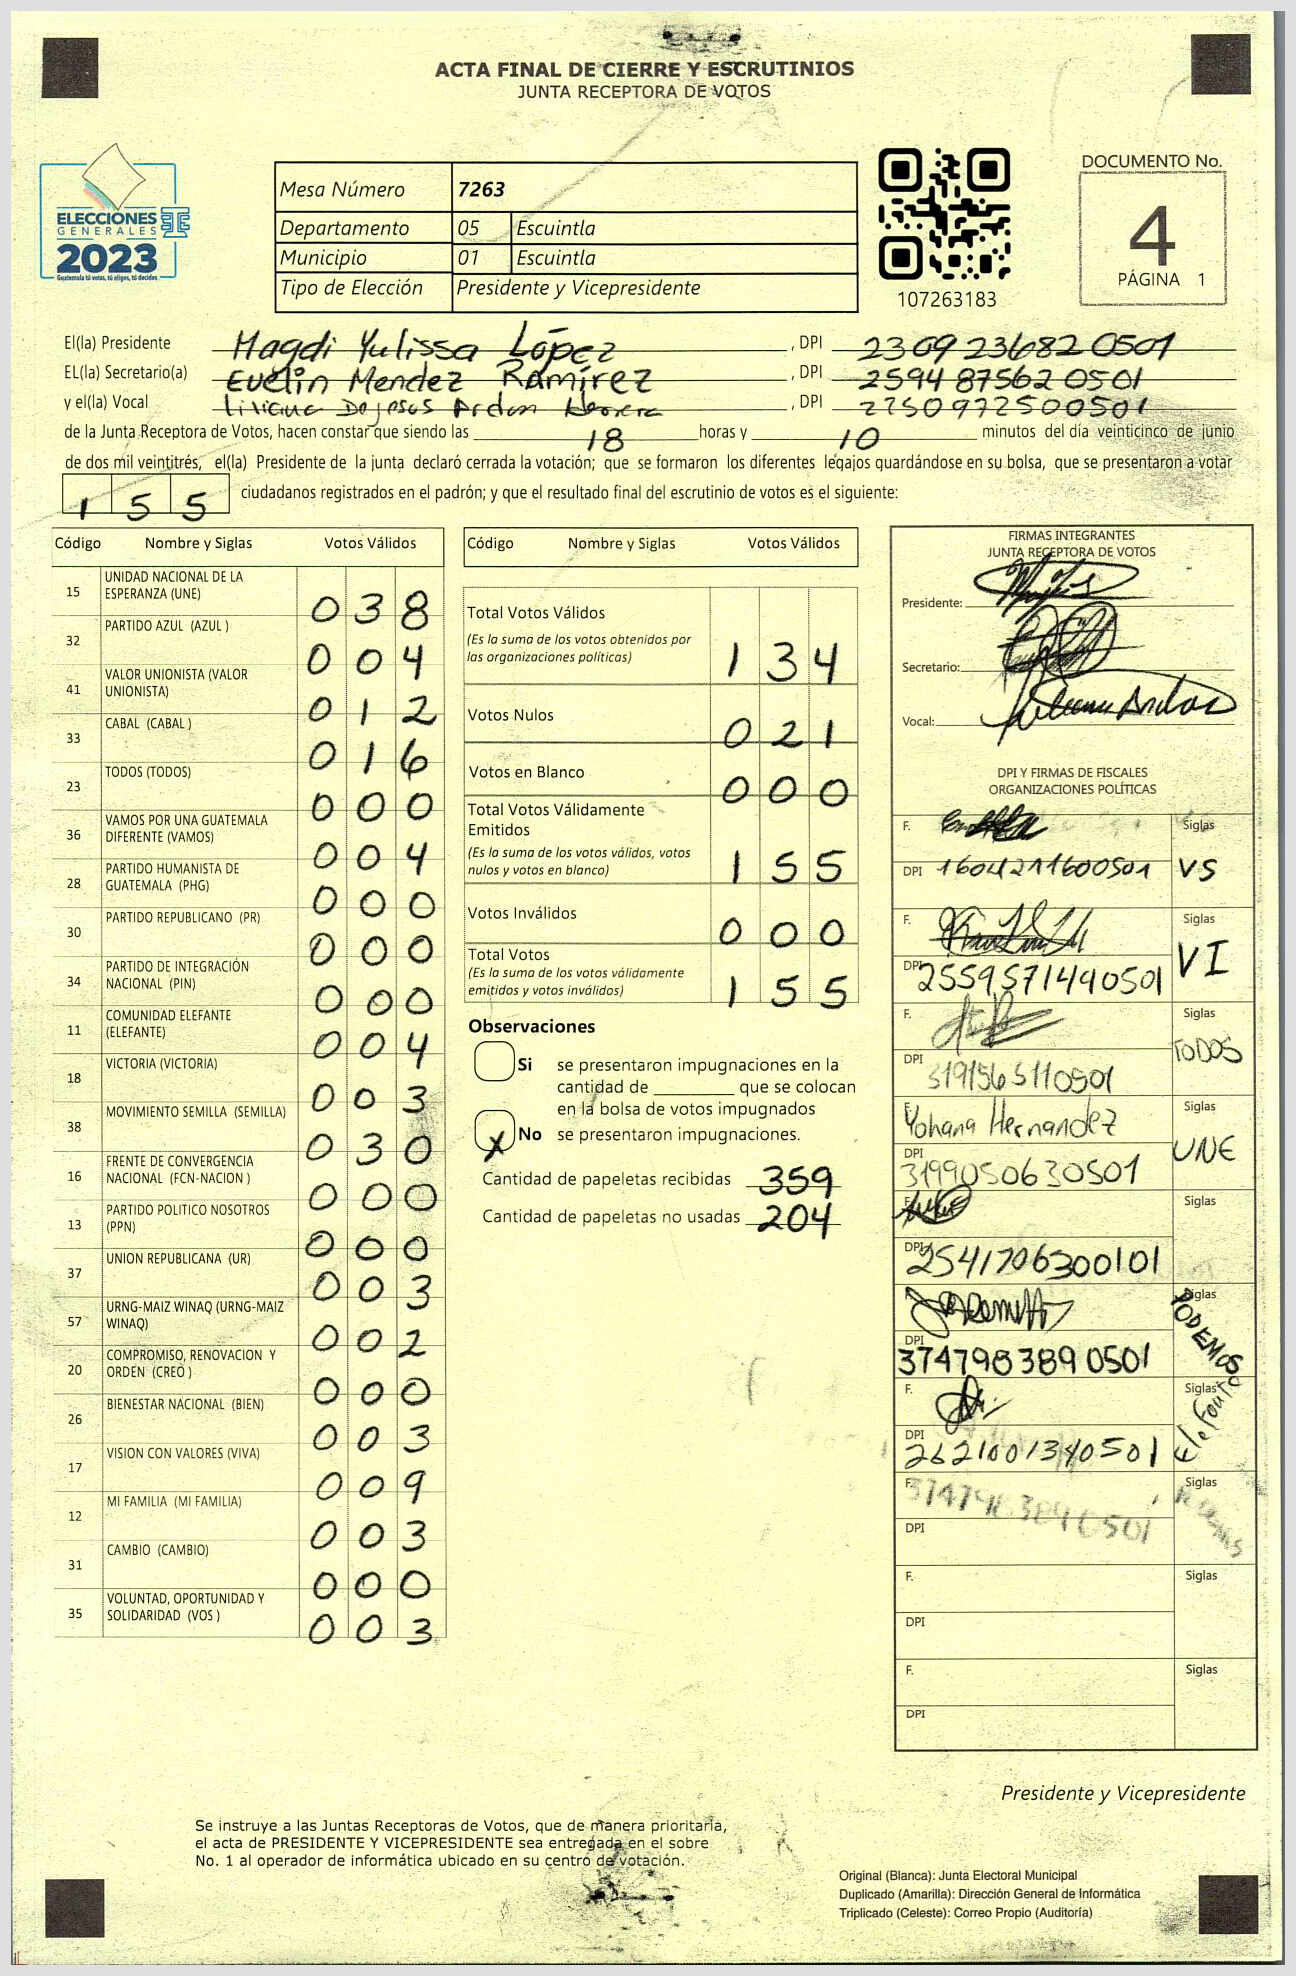 ACTA FINAL DE CIERRE Y ESCRUTINIOS
JUNTA RECEPTORA DE VOTOS
ELECCIONES
GENERALES
2023
Guatemala tú votas, tú eliges, tú decides
Mesa Número 7263
Departamento 05 Escuintla
Municipio 01 Escuintla
Tipo de Elección Presidente y Vicepresidente
107263183
DOCUMENTO No.
4
PÁGINA 1
El(la) Presidente Magdi Yulissa López , DPI 2309 23682 0501
EL(la) Secretario(a) Evelin Mendez Ramírez , DPI 2594 87562 0501
y el(la) Vocal Liliana Dejesus Ardon Herrera , DPI 2250972500501
de la Junta Receptora de Votos, hacen constar que siendo las 18 horas y 10 minutos del día veinticinco de junio
de dos mil veintitrés, el(la) Presidente de la junta declaró cerrada la votación; que se formaron los diferentes legajos guardándose en su bolsa, que se presentaron a votar
155 ciudadanos registrados en el padrón; y que el resultado final del escrutinio de votos es el siguiente:
Código Nombre y Siglas Votos Válidos
15 UNIDAD NACIONAL DE LA ESPERANZA (UNE) 038
32 PARTIDO AZUL (AZUL ) 004
41 VALOR UNIONISTA (VALOR UNIONISTA) 012
33 CABAL (CABAL ) 016
23 TODOS (TODOS) 000
36 VAMOS POR UNA GUATEMALA DIFERENTE (VAMOS) 004
28 PARTIDO HUMANISTA DE GUATEMALA (PHG) 000
30 PARTIDO REPUBLICANO (PR) 000
34 PARTIDO DE INTEGRACIÓN NACIONAL (PIN) 000
11 COMUNIDAD ELEFANTE (ELEFANTE) 004
18 VICTORIA (VICTORIA) 003
38 MOVIMIENTO SEMILLA (SEMILLA) 030
16 FRENTE DE CONVERGENCIA NACIONAL (FCN-NACION ) 000
13 PARTIDO POLITICO NOSOTROS (PPN) 000
37 UNION REPUBLICANA (UR) 003
57 URNG-MAIZ WINAQ (URNG-MAIZ WINAQ) 002
20 COMPROMISO, RENOVACION Y ORDEN (CREO ) 000
26 BIENESTAR NACIONAL (BIEN) 003
17 VISION CON VALORES (VIVA) 009
12 MI FAMILIA (MI FAMILIA) 003
31 CAMBIO (CAMBIO) 000
35 VOLUNTAD, OPORTUNIDAD Y SOLIDARIDAD (VOS ) 003
Código Nombre y Siglas Votos Válidos
Total Votos Válidos 134
(Es la suma de los votos obtenidos por
las organizaciones políticas)
Votos Nulos 021
Votos en Blanco 000
Total Votos Válidamente
Emitidos 155
(Es la suma de los votos válidos, votos
nulos y votos en blanco)
Votos Inválidos 000
Total Votos 155
(Es la suma de los votos válidamente
emitidos y votos inválidos)
Observaciones
Si se presentaron impugnaciones en la
cantidad de ________ que se colocan
en la bolsa de votos impugnados
X No se presentaron impugnaciones.
Cantidad de papeletas recibidas 359
Cantidad de papeletas no usadas 204
FIRMAS INTEGRANTES
JUNTA RECEPTORA DE VOTOS
Presidente:
Secretario:
Vocal:
DPI Y FIRMAS DE FISCALES
ORGANIZACIONES POLÍTICAS
F. Siglas
DPI 1604211600501 VS
F. Siglas
DPI 2559571490501 VI
F. Siglas
DPI 3191565110501 TODOS
F. Yohana Hernandez Siglas
DPI 3199050630501 UNE
F. Siglas
DPI 2541706300101
F. Siglas
DPI 3747983890501 PODEMOS
F. Siglas
DPI 2621001340501 Elefante
F. 3747983890501 Siglas
DPI
F. Siglas
DPI
F. Siglas
DPI
Presidente y Vicepresidente
Se instruye a las Juntas Receptoras de Votos, que de manera prioritaria,
el acta de PRESIDENTE Y VICEPRESIDENTE sea entregada en el sobre
No. 1 al operador de informática ubicado en su centro de votación.
Original (Blanca): Junta Electoral Municipal
Duplicado (Amarilla): Dirección General de Informática
Triplicado (Celeste): Correo Propio (Auditoría)